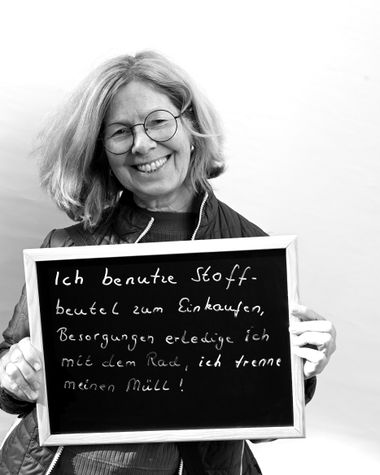 Ich benutze Stoff-
beutel zum Einkaufen,
Besorgungen erledige ich
mit dem Rad, ich trenne
meinen Müll!